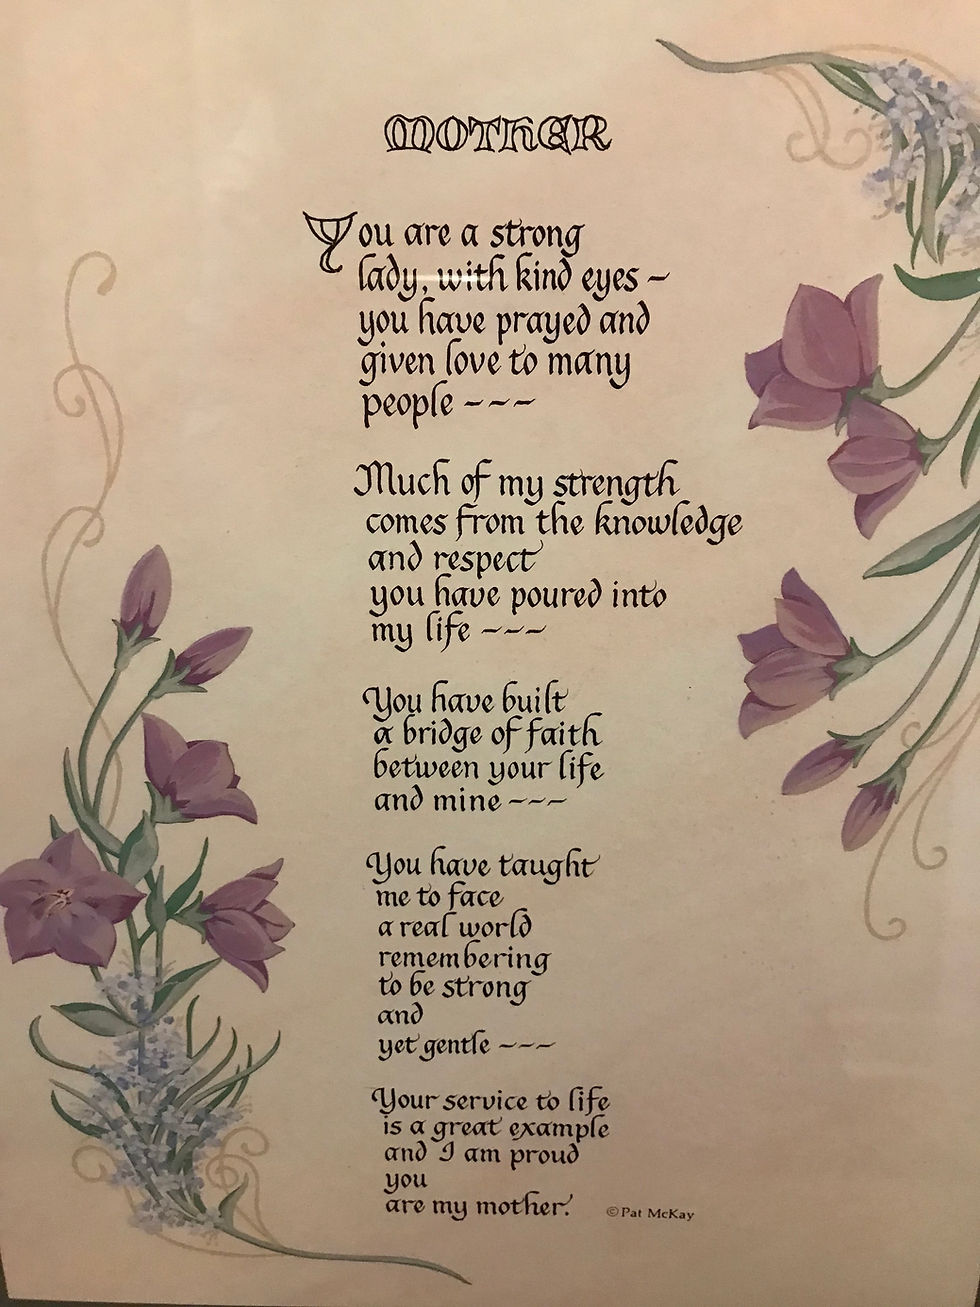 MOTHER
You are a strong
lady, with kind eyes ~
you have prayed and
given love to many
people ~~~
Much of my strength
comes from the knowledge
and respect
you have poured into
my life ~~~
You have built
a bridge of faith
between your life
and mine ~~~
You have taught
me to face
a real world
remembering
to be strong
and
yet gentle ~~~
Your service to life
is a great example
and I am proud
you
are my mother.
©Pat McKay